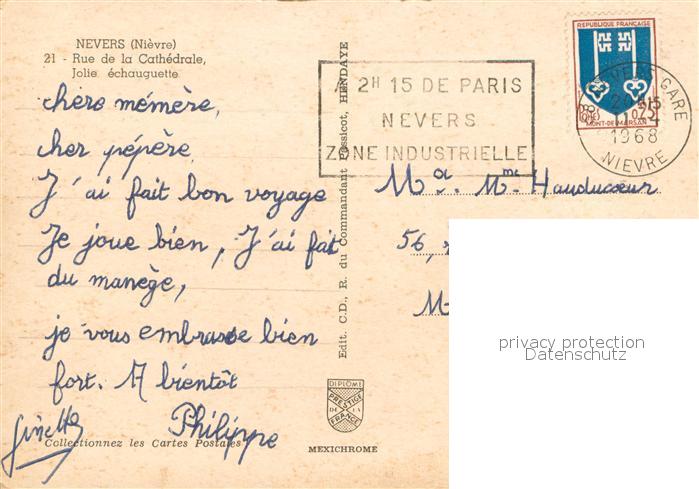 NEVERS (Nièvre)
21 - Rue de la Cathédrale,
Jolie échauguette
chère mémère,
cher pépère,
J'ai fait bon voyage
Je joue bien, J'ai fait
du manège,
je vous embrasse bien
fort. A bientôt
Philippe
Ginette
Collectionnez les Cartes Postales
Edit. C.D., R. du Commandant Passicot, HENDAYE
DIPLÔME
PRESTIGE
DE LA
FRANCE
MEXICHROME
A 2H 15 DE PARIS
NEVERS
ZONE INDUSTRIELLE
REPUBLIQUE FRANÇAISE
0,25
MONT-DE-MARSAN
NEVERS GARE
1968
NIEVRE
M. et Mme Hauducoeur
56,
privacy protection
Datenschutz